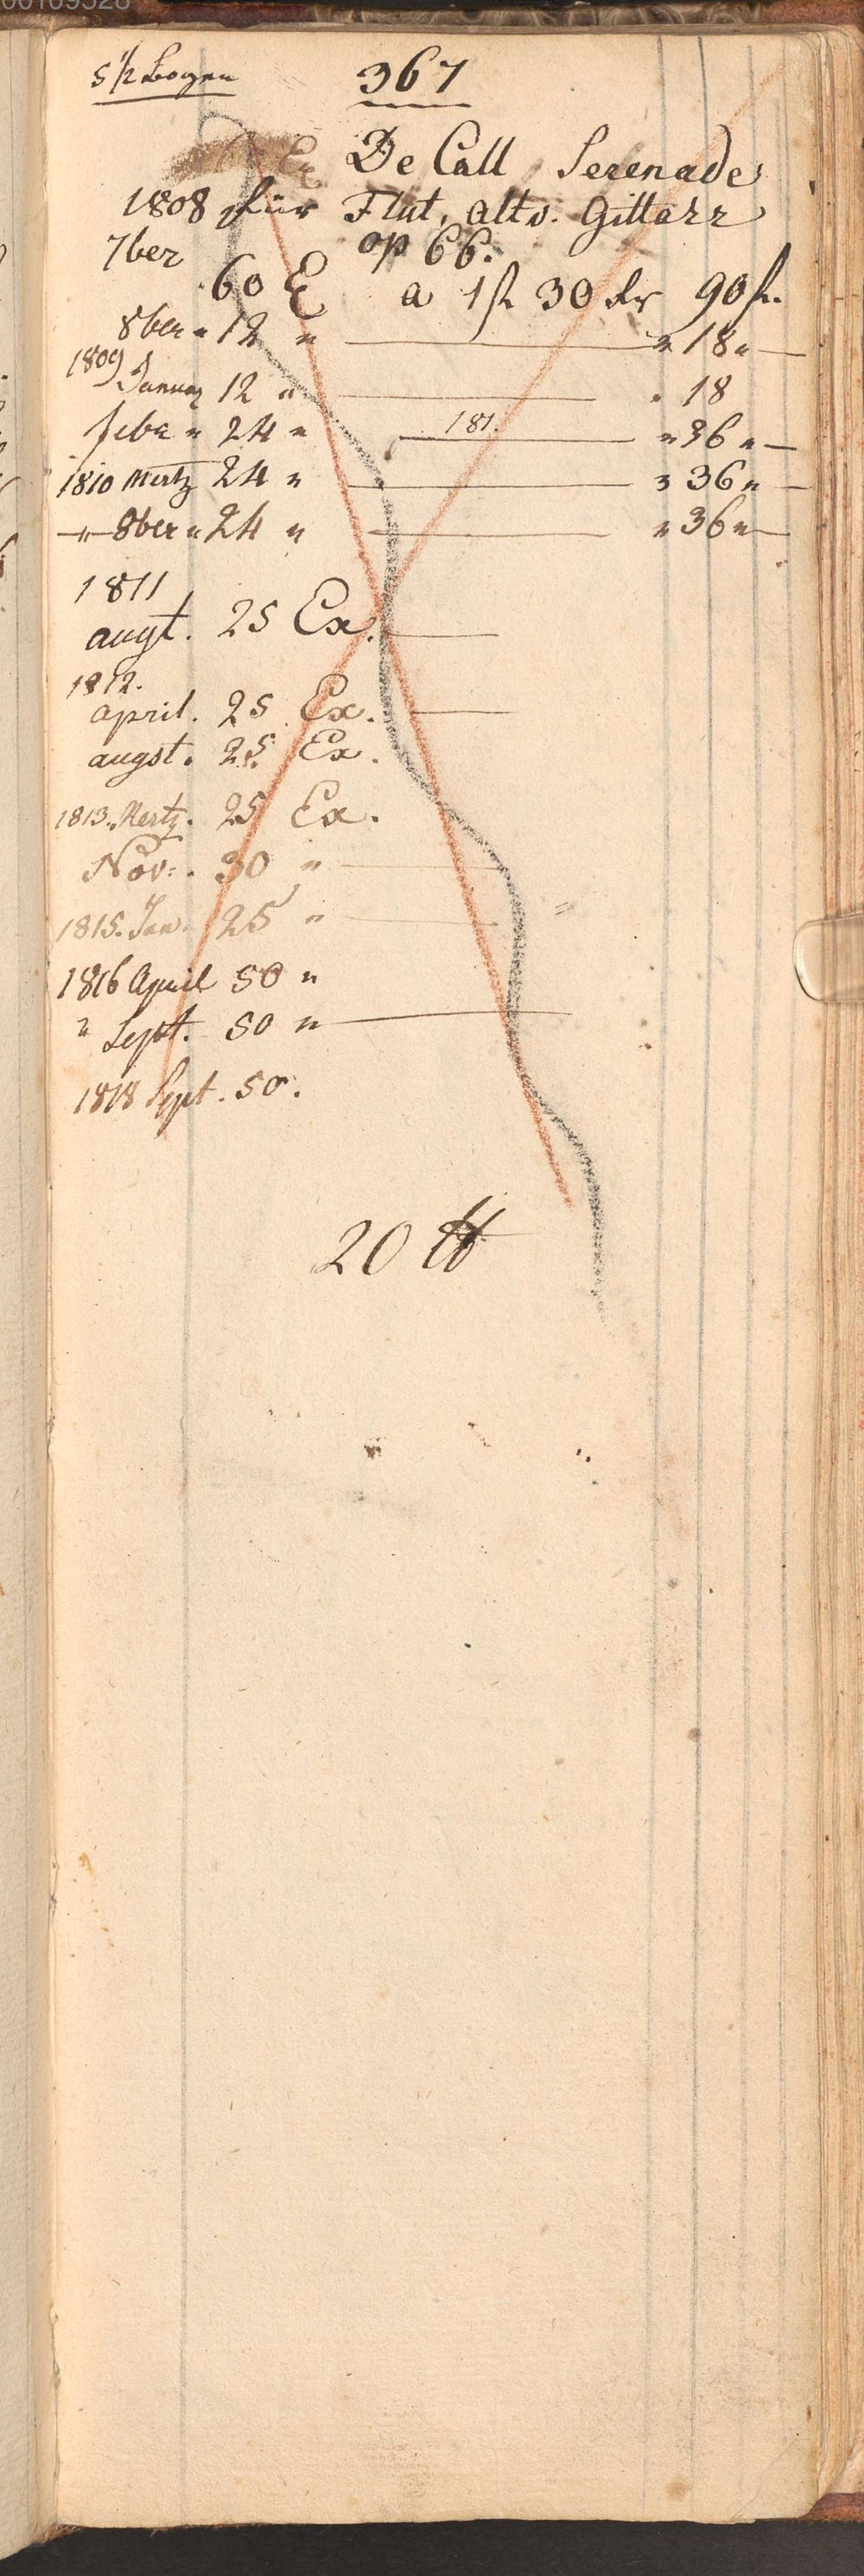 00109528
5 1/2 Bogen 367
Ex De Call Serenade
1808 für Flut, alto. Gittarr
7ber op 66.
60 E a 1 fl 30 kr 90 fl.
8ber " 12 " — " 18 " —
1809
Januar 12 " — " 18
febr " 24 " — 181. — " 36 " —
1810 Mertz 24 " — " 36 " —
—"— 8ber " 24 " — " 36 " —
1811
augt. 25 Ex. —
1812.
april. 25 Ex. —
augst. 25. Ex.
1813. Mertz. 25 Ex.
Nov: . 30 " —
1815. Jan. 25 " —
1816 April 50 "
" Sept. 50 " —
1818 Sept. 50.
20 ℔